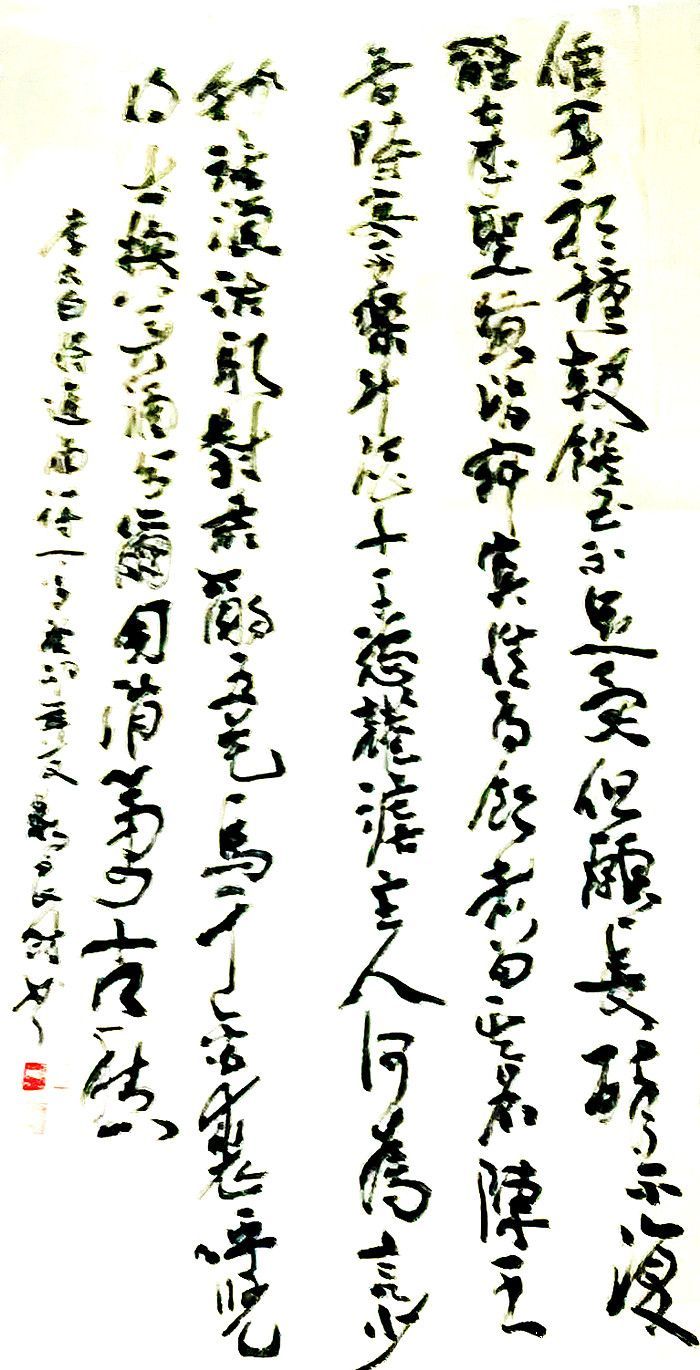 傾耳聽鐘鼓饌玉不足貴但願長醉不復
醒古來聖賢皆寂寞惟有飲者留其名陳王
昔時宴平樂斗酒十千恣讙謔主人何為言少
錢徑須沽取對君酌五花馬千金裘呼兒
將出換美酒與爾同消萬古愁
李太白將進酒詩一首